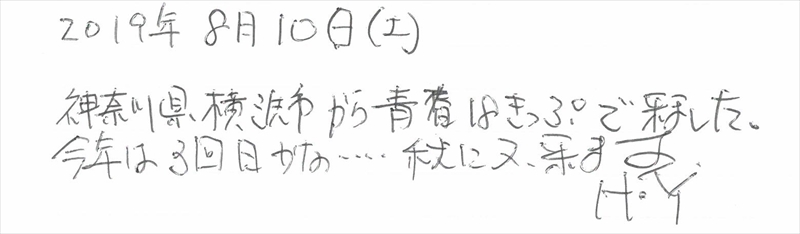 2019年8月10日(土)
神奈川県横浜市から青春18きっぷで来ました。
今年は3回目かな……秋に又、来ます。
H.Y